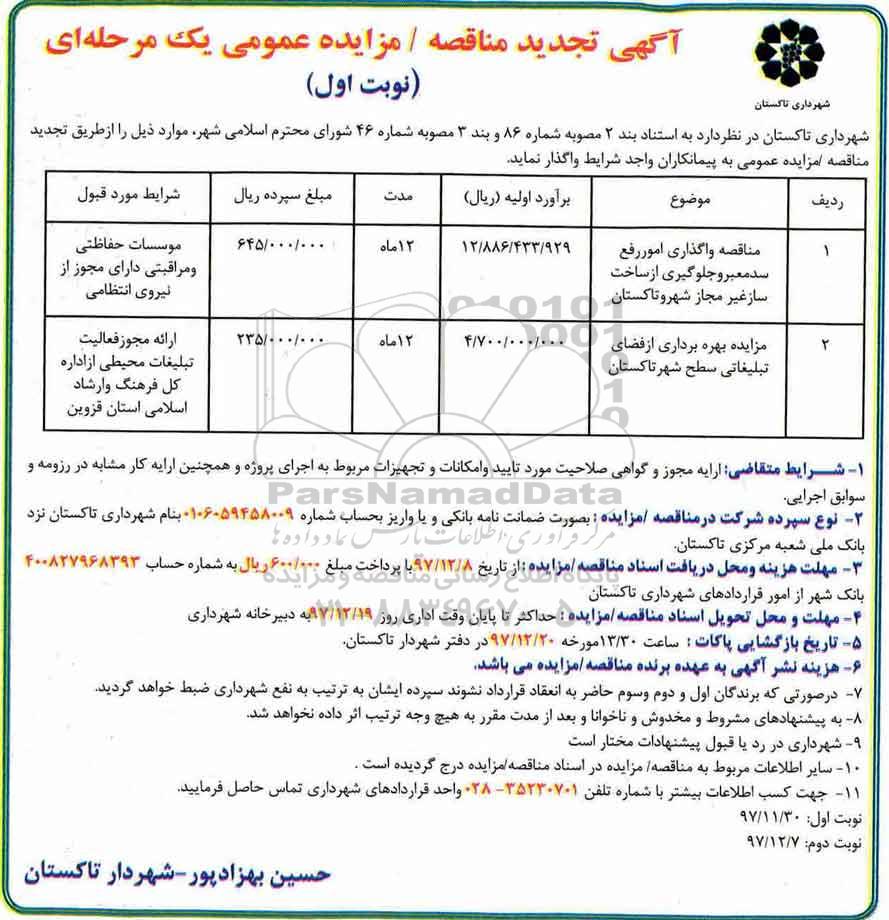 آگهی تجدید مناقصه / مزایده عمومی یک مرحله‌ای
(نوبت اول)
شهرداری تاکستان
شهرداری تاکستان در نظردارد به استناد بند ۲ مصوبه شماره ۸۶ و بند ۳ مصوبه شماره ۴۶ شورای محترم اسلامی شهر، موارد ذیل را ازطریق تجدید
مناقصه /مزایده عمومی به پیمانکاران واجد شرایط واگذار نماید.
ردیف موضوع برآورد اولیه (ریال) مدت مبلغ سپرده ریال شرایط مورد قبول
۱ مناقصه واگذاری اموررفع ۱۲/۸۸۶/۴۳۳/۹۲۹ ۱۲ماه ۶۴۵/۰۰۰/۰۰۰ موسسات حفاظتی
سدمعبروجلوگیری ازساخت ومراقبتی دارای مجوز از
سازغیر مجاز شهروتاکستان نیروی انتظامی
۲ مزایده بهره برداری ازفضای ۴/۷۰۰/۰۰۰/۰۰۰ ۱۲ماه ۲۳۵/۰۰۰/۰۰۰ ارائه مجوزفعالیت
تبلیغاتی سطح شهرتاکستان تبلیغات محیطی ازاداره
کل فرهنگ وارشاد
اسلامی استان قزوین
۱- شرایط متقاضی: ارایه مجوز و گواهی صلاحیت مورد تایید وامکانات و تجهیزات مربوط به اجرای پروژه و همچنین ارایه کار مشابه در رزومه و
سوابق اجرایی.
ParsNamadData
۲- نوع سپرده شرکت درمناقصه /مزایده : بصورت ضمانت نامه بانکی و یا واریز بحساب شماره ۰۱۰۶۰۵۹۴۵۸۰۰۹ بنام شهرداری تاکستان نزد
بانک ملی شعبه مرکزی تاکستان.
مرکز فرآوری اطلاعات پارس نماد داده ها
۳- مهلت هزینه ومحل دریافت اسناد مناقصه/مزایده : از تاریخ ۹۷/۱۲/۸ با پرداخت مبلغ ۶۰۰/۰۰۰ ریال به شماره حساب ۴۰۰۸۲۷۹۶۸۳۹۳
پایگاه اطلاع رسانی مناقصه و مزایده
بانک شهر از امور قراردادهای شهرداری تاکستان
۰۲۱-۸۸۳۴۹۶۷۰-۵
۴- مهلت و محل تحویل اسناد مناقصه/مزایده : حداکثر تا پایان وقت اداری روز ۹۷/۱۲/۱۹ به دبیرخانه شهرداری
۵- تاریخ بازگشایی پاکات : ساعت ۱۳/۳۰مورخه ۹۷/۱۲/۲۰ در دفتر شهردار تاکستان.
۶- هزینه نشر آگهی به عهده برنده مناقصه/مزایده می باشد.
۷- درصورتی که برندگان اول و دوم وسوم حاضر به انعقاد قرارداد نشوند سپرده ایشان به ترتیب به نفع شهرداری ضبط خواهد گردید.
۸- به پیشنهادهای مشروط و مخدوش و ناخوانا و بعد از مدت مقرر به هیچ وجه ترتیب اثر داده نخواهد شد.
۹- شهرداری در رد یا قبول پیشنهادات مختار است
۱۰- سایر اطلاعات مربوط به مناقصه/ مزایده در اسناد مناقصه/مزایده درج گردیده است .
۱۱- جهت کسب اطلاعات بیشتر با شماره تلفن ۳۵۲۳۰۷۰۱-۰۲۸ واحد قراردادهای شهرداری تماس حاصل فرمایید.
نوبت اول: ۹۷/۱۱/۳۰
نوبت دوم: ۹۷/۱۲/۷
حسین بهزادپور-شهردار تاکستان